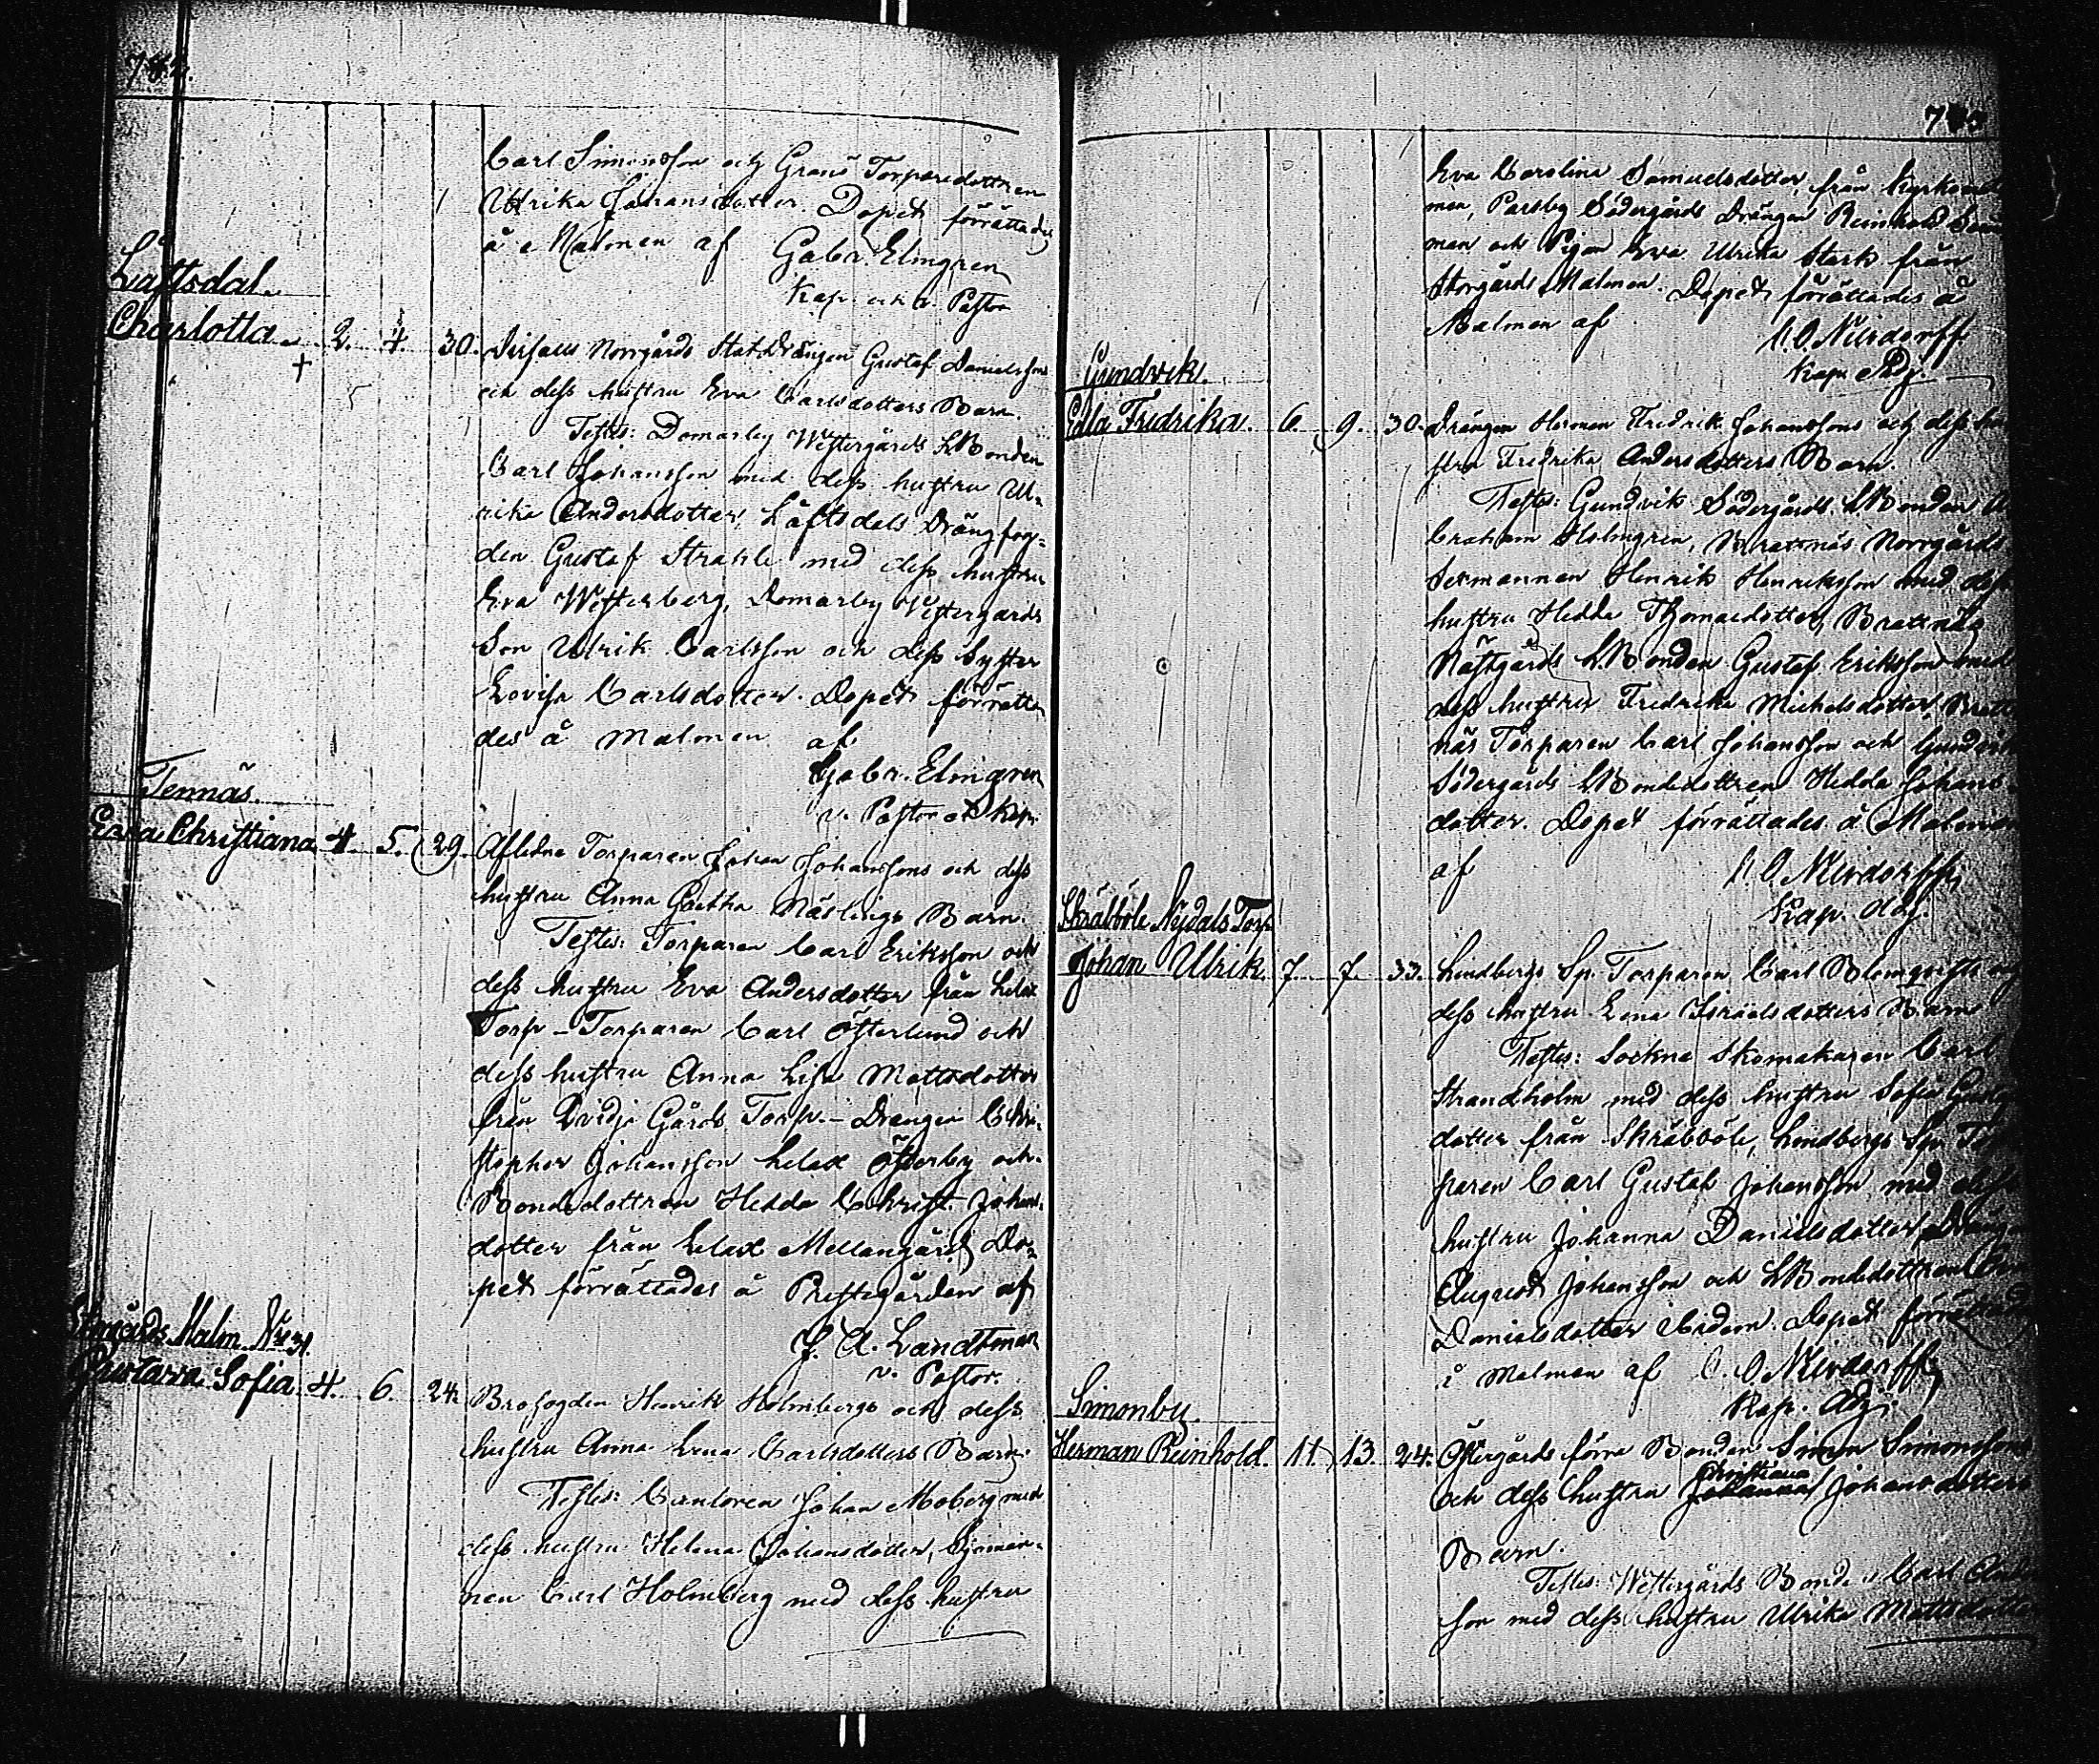 Carl Simonsson och Gräns Torparedottren
Ulrika Johansdotter. Dopet förrättades
å Malmen af Gabr. Elmgren
Kap. och v. Pastor
Läftsdal.
Charlotta. 2. 4. 30. Norrgårds Statdrängen Gustaf Danielssons
och dess hustru Eva Carlsdotters Barn.
Testes: Domarby Westergårds LBonden
Carl Johansson med dess hustru Ul-
rika Andersdotter, Läftsdals Drängfog-
den Gustaf Strahle med dess hustru
Eva Westerberg, Domarby Vestergårds
Son Ulrik Carlsson och dess Syster
Lovisa Carlsdotter. Dopet förrätta
des å Malmen af
Gabr. Elmgren
v. Pastor och Kap.
Tennäs.
Christiana 4. 5. 29. Aflidne Torparen Johan Johanssons och dess
hustru Anna Greetha Näslings Barn.
Testes: Torparen Carl Eriksson och
dess hustru Eva Andersdotter från Lelax
Torp – Torparen Carl Österlund och
dess hustru Anna Lisa Mattsdotter
från Qvidja Gårds Torp. – Drengen Chri-
stopher Johansson Lelax Österby och
Bondedottren Hedda Christ. Johans-
dotter från Lelax Mellangård, Do-
pet förrättades å Prestegården af
J. A. Landtman
v. Pastor.
Storgårds Malm No 31.
Gustava Sofia. 4. 6. 24. Brofogden Henrik Holmbergs och dess
hustru Anna Lena Carlsdotters Barn.
Testes: Cantoren Johan Moberg med
dess hustru Helena Johansdotter, Sjöman-
nen Carl Holmberg med dess hustru
Eva Carolina Samuelsdotter, från
men, Parsby Södergårds Drängen Reinhold
man och Pigan Eva Ulrika Stark från
Storgårds Malmen. Dopet förrättades å
Malmen af
C. O. Neisdorff
Kap. Adj.
Gundvik.
Edla Fredrika. 6. 9. 30. Drängen Herman Fredrik Johanssons och dess hu
stru Fredrika Andersdotters Barn.
Testes: Gundvik Södergårds LBonden A
braham Holmgren, Brattnäs Norrgårds
Sexmannen Henrik Henriksson med dess
hustru Hedda Thomasdotter, Brattnäs
Nästgårds LBonden Gustaf Eriksson med
dess hustru Fredrika Michelsdotter, Bratt
näs Torparen Carl Johansson och Gundvik
Södergårds LBondedottren Hedda Johans-
dotter. Dopet förrättades å Malmen
af C. O. Neisdorff
Kap. Adj.
Skräbböle Nydals Torp
Johan Ulrik. 7. 7. 33. Lindbergs Sp. Torparen Carl Blomqvists och
dess hustru Lena Israelsdotters Barn
Testes: Sockne Skomakaren Carl
Strandholm med dess hustru Sofia
dotter från Skräbböle, Lindbergs Sp. Tor
paren Carl Gustaf Johansson med dess
hustru Johanna Danielsdotter, Drängen
August Johansson och LBondedottren
Danielsdotter ibidem. Dopet förrättades
å Malmen af C. O. Neisdorff
Kap. Adj.
Simonby.
Herman Reinhold. 11. 13. 24. Östergårds förre Bonden Simon Simonssons
Christiana
och dess hustru Johanna Johansdotters
Barn.
Testes: Westergårds Bonden Carl
son med dess hustru Ulrika Mattsdotter